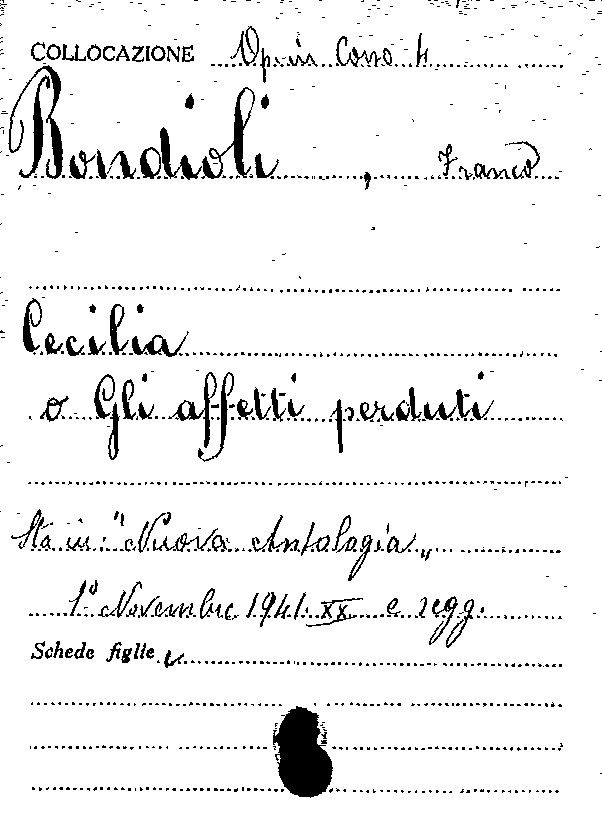 COLLOCAZIONE Op. in Corso 4
Bondioli, Franco
Cecilia
o Gli affetti perduti
Sta in: "Nuova Antologia„
1º Novembre 1941. XX e segg.
Schede figlie